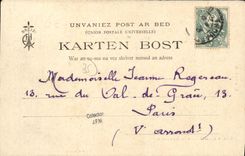 UNVANIEZ POST AR BED
(UNION POSTALE UNIVERSELLE)
KARTEN BOST
War an tu-ma na vezer skrivet nemed an adres
Mademoiselle Jeanne Rogereau
13, rue du Val-de-Grâce, 13
Paris
(Ve arrondt)